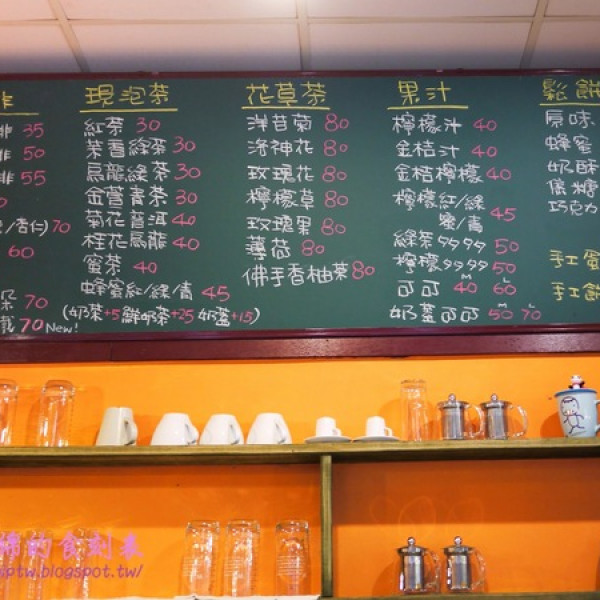 啡
啡 35
啡 50
啡 55
/杏仁) 70
60
70
70 New!
現泡茶
紅茶 30
茉香綠茶 30
烏龍綠茶 30
金萱青茶 30
菊花普洱 40
桂花烏龍 40
蜜茶 40
蜂蜜紅/綠/青 45
(奶茶+5 鮮奶茶+25 奶蓋+15)
花草茶
洋甘菊 80
洛神花 80
玫瑰花 80
檸檬草 80
玫瑰果 80
薄荷 80
佛手香柚茶 80
果汁
檸檬汁 40
金桔汁 40
金桔檸檬 40
檸檬紅/綠
蜜/青 45
綠茶多多 50
檸檬多多 50
M L
可可 40 60
M L
奶蓋可可 50 70
鬆餅
原味
蜂蜜
奶酥
巧克力
手工蛋
手工餅
婦的食刻表
iptw.blogspot.tw/